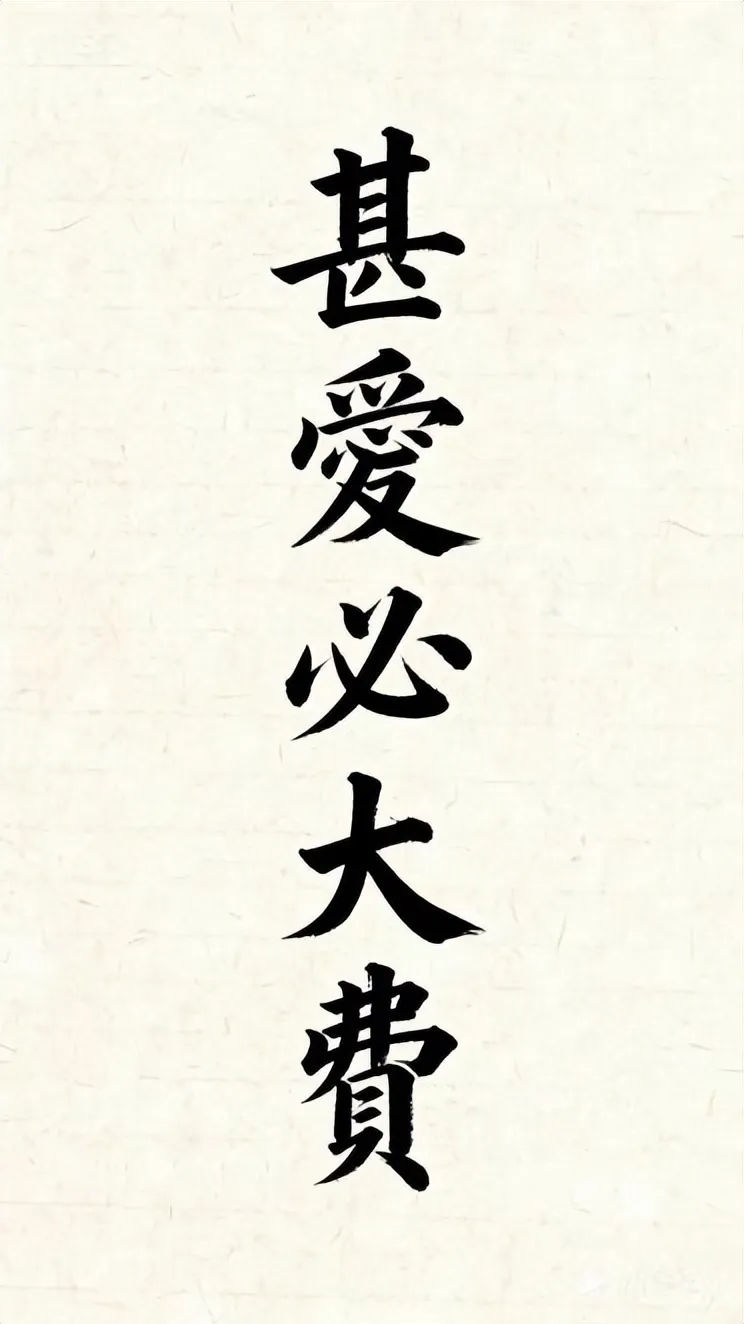 甚愛必大費